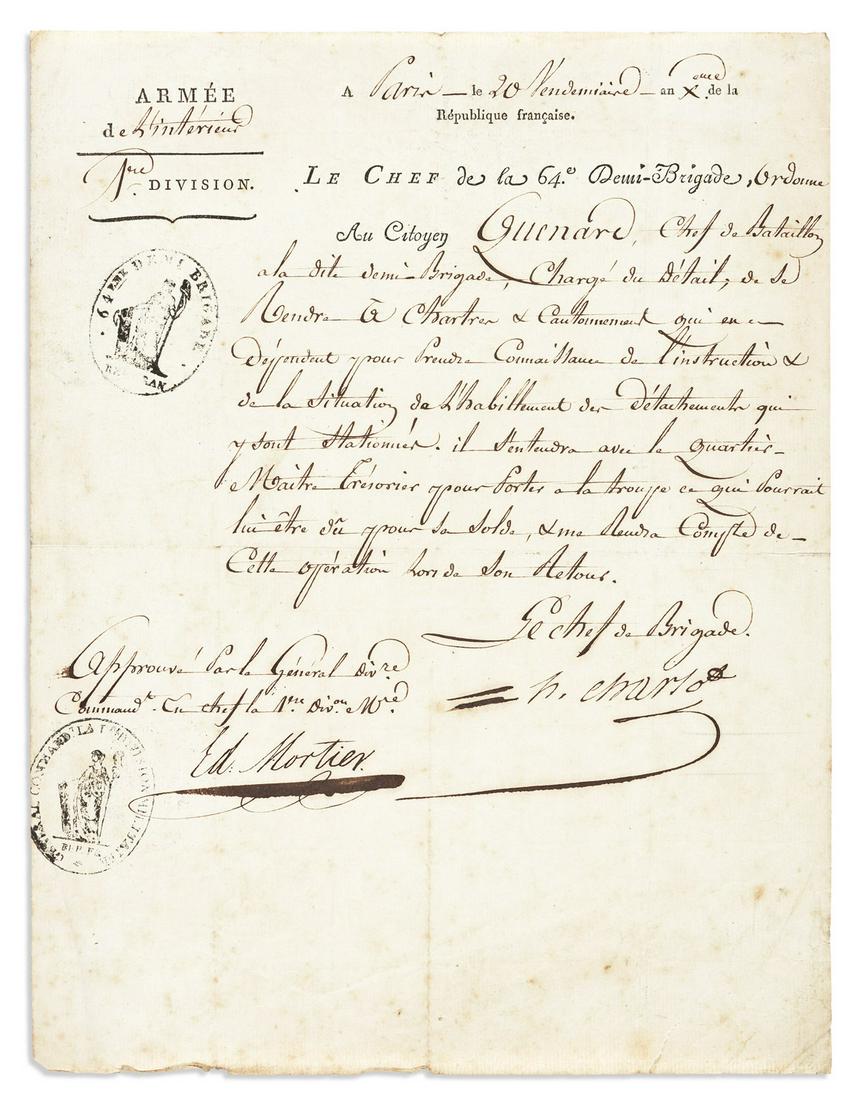 ARMÉE
de L'intérieur
1ere DIVISION.
A Paris — le 20 Vendemiaire — an Xeme de la
République française.
LE CHEF de la 64.e Demi-Brigade, Ordonne
Au Citoyen Quenard, Chef de Bataillon
a la dite demi-Brigade, Chargé du Détail, de se
Rendre à Chartres & Cantonnement qui en
Dépendent pour Prendre Connaissance de l'instruction &
de la Situation de L'habillement des Détachements qui
y sont Stationnés. il S'entendra avec le Quartier-
Maitre Trésorier pour Porter a la troupe ce qui Pourrait
lui être dû pour sa Solde, & me Rendra Compte de
Cette opération Lors de Son Retour.
Le chef de Brigade.
h. charlot
Approuvé Par le Général Divre
Commandt. En chef la 1re Divon Mre
Ed. Mortier
64EME DEMI BRIGADE
GENERAL COMMANDT LA 1 DIVISION MILITAIRE